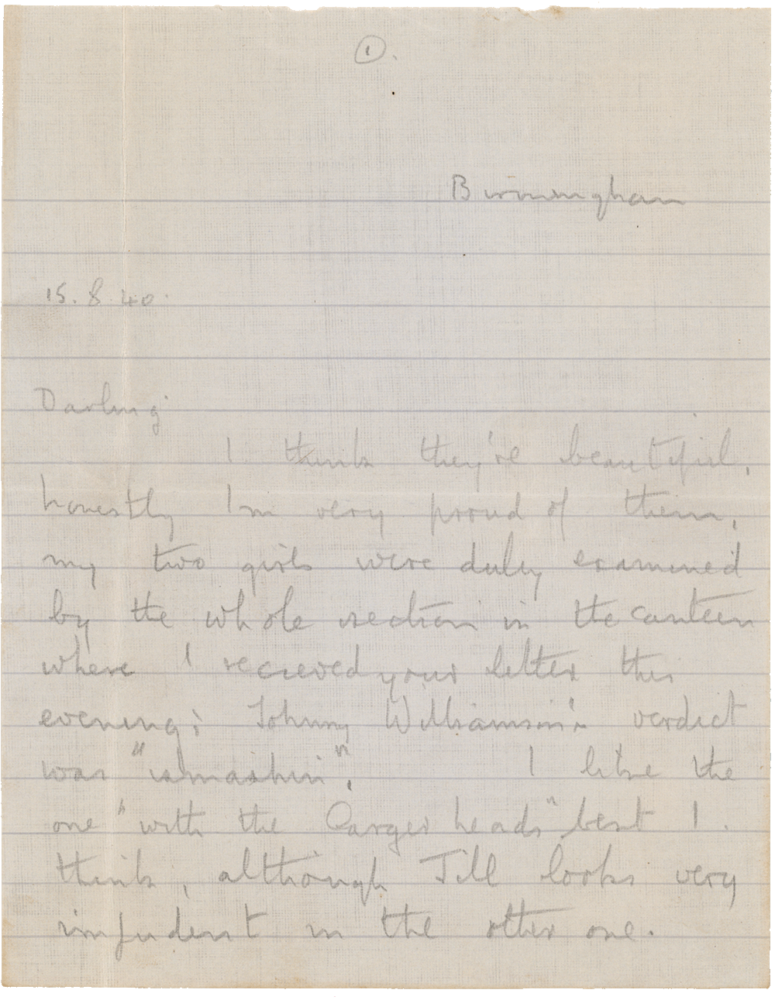 1.
Birmingham
15. 8. 40.
Darling
I think they're beautiful,
honestly I'm very proud of them,
my two girls were duly examined
by the whole section in the canteen
where I recieved your letter this
evening; Johnny Williamson's verdict
was "smashin".  I like the
one "with the larger heads" best I
think, although Jill looks very
impudent in the other one.